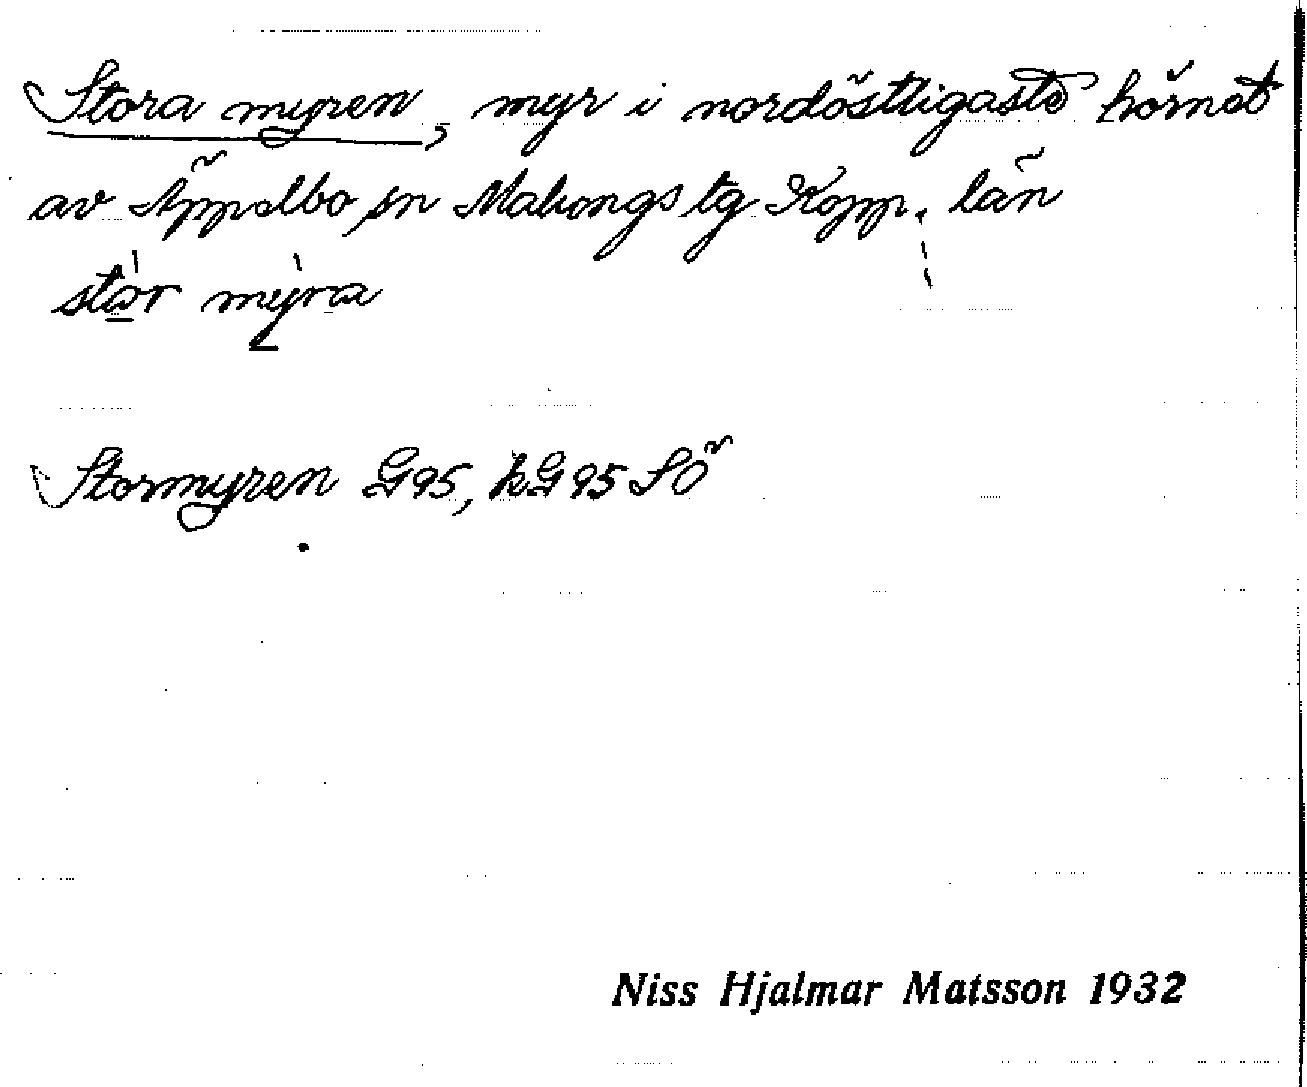 Stora myren, myr i nordöstligaste hörnet
av Äppelbo sn Malungs tg Kopp. län
stor myra
Stormyren G95, hG95 SÖ
Niss Hjalmar Matsson 1932